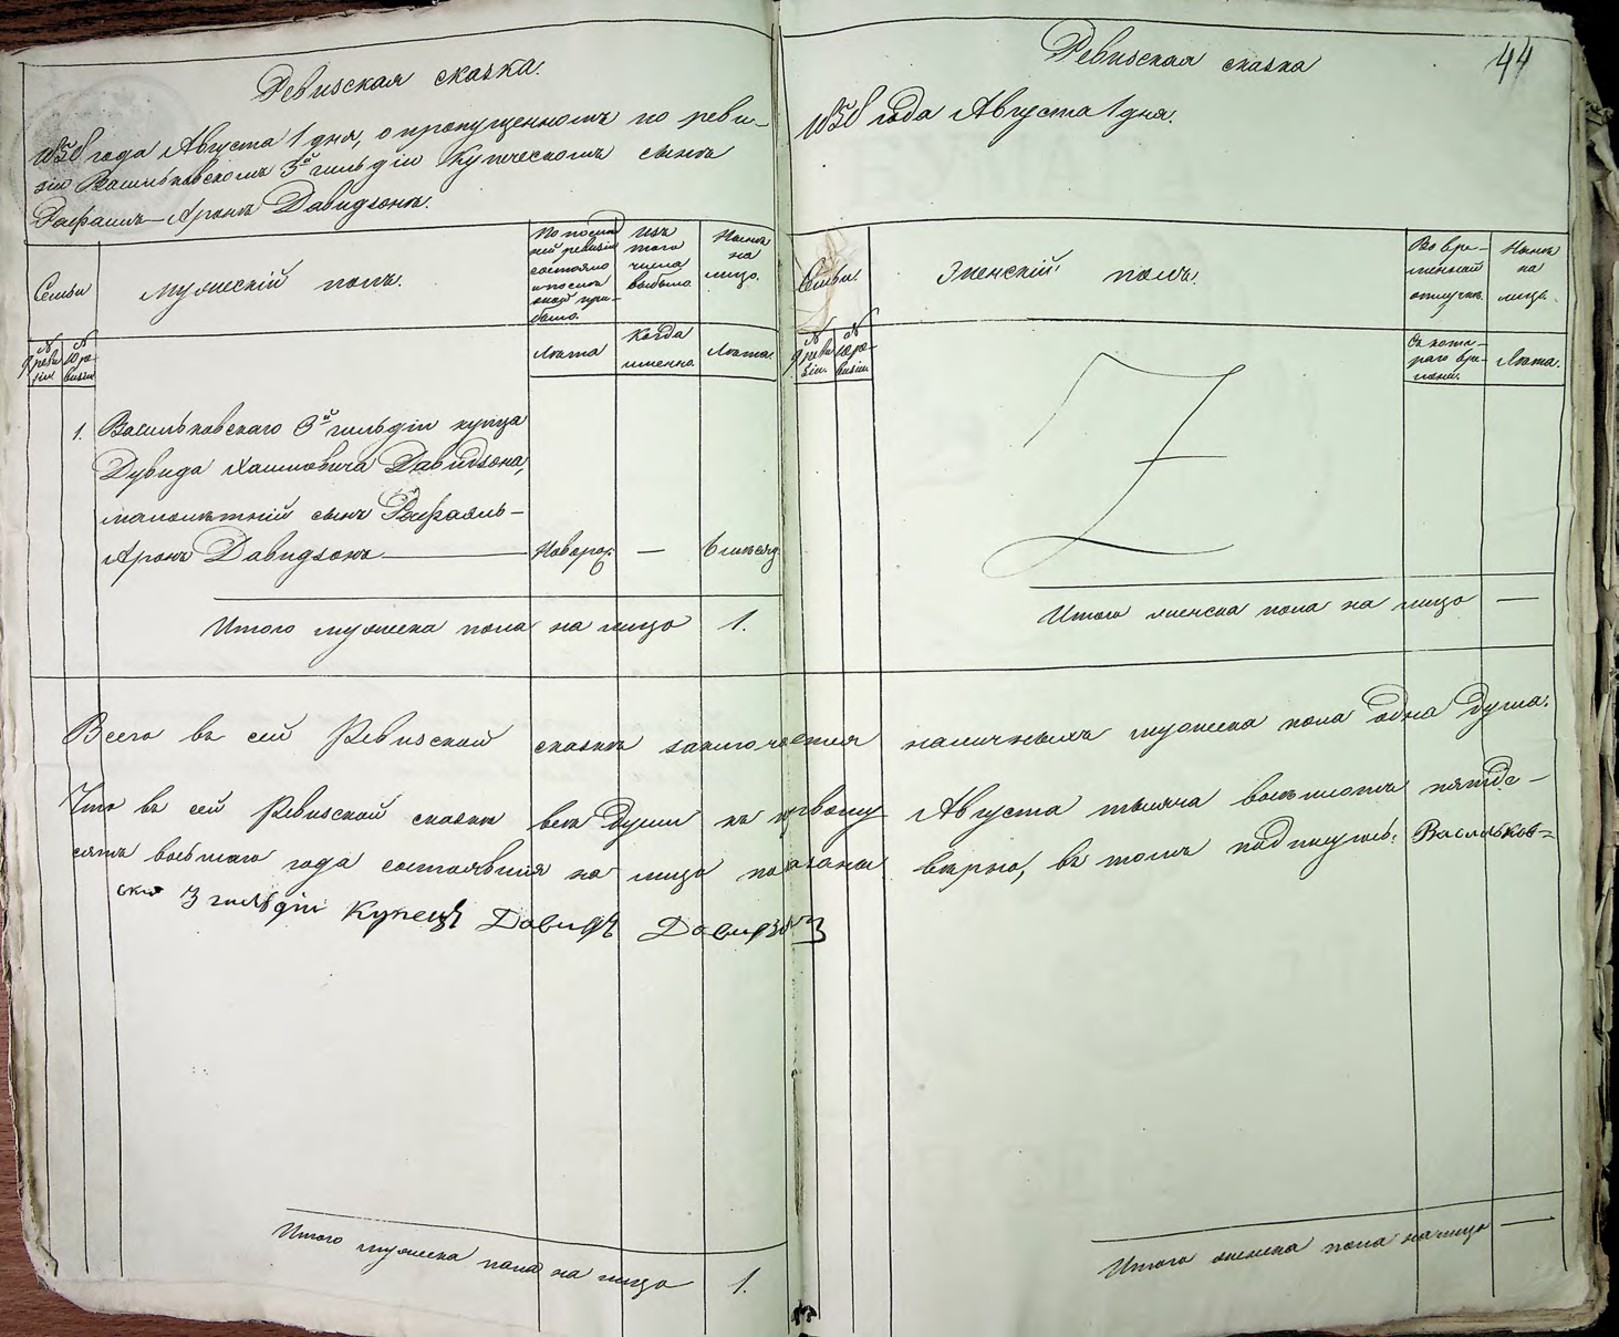 Ревизская сказка.
1858 года Августа 1 дня, о пропущенномъ по реви-
зіи Васильковскомъ 3й гильдіи Купеческомъ сынѣ
Рафаилъ-Аронъ Давидзонѣ.
Семьи
Мужескій полъ.
По послѣд
ней ревизіи
состояло
и послѣ
оной при-
было.
Изъ
того
числа
выбыло
Нынѣ
на
лицо.
№
9 реви
зіи
№
10 ре-
визіи
Лѣта
Когда
именно.
Лѣта.
1. Васильковскаго 3й гильдіи купца
Дувида Хаимовича Давидзона,
малолѣтній сынъ Рафаэль-
Аронъ Давидзонъ — Новорож. — 6 мѣсяц.
Итого мужеска пола на лицо 1.
Ревизская сказка
44
1858 года Августа 1 дня.
Семьи.
Женскій полъ.
Во вре-
менной
отлучкѣ.
Нынѣ
на
лицо.
№
9 реви
зіи.
№
10 ре-
визіи.
Съ кото-
раго вре-
мени.
Лѣта.
Итого женска пола на лицо —
Всего въ сей Ревизской сказкѣ заключается наличныхъ мужеска пола одна душа.
Что въ сей Ревизской сказкѣ всѣ души къ первому Августа тысяча восемьсотъ пятьде-
сятъ восьмаго года состоявшія на лицо показаны вѣрно, въ томъ подпишусь: Васильков-
скій 3 гильдіи Купецъ Давидъ Давидзон
Итого мужеска пола на лицо 1.
Итого женска пола на лицо —